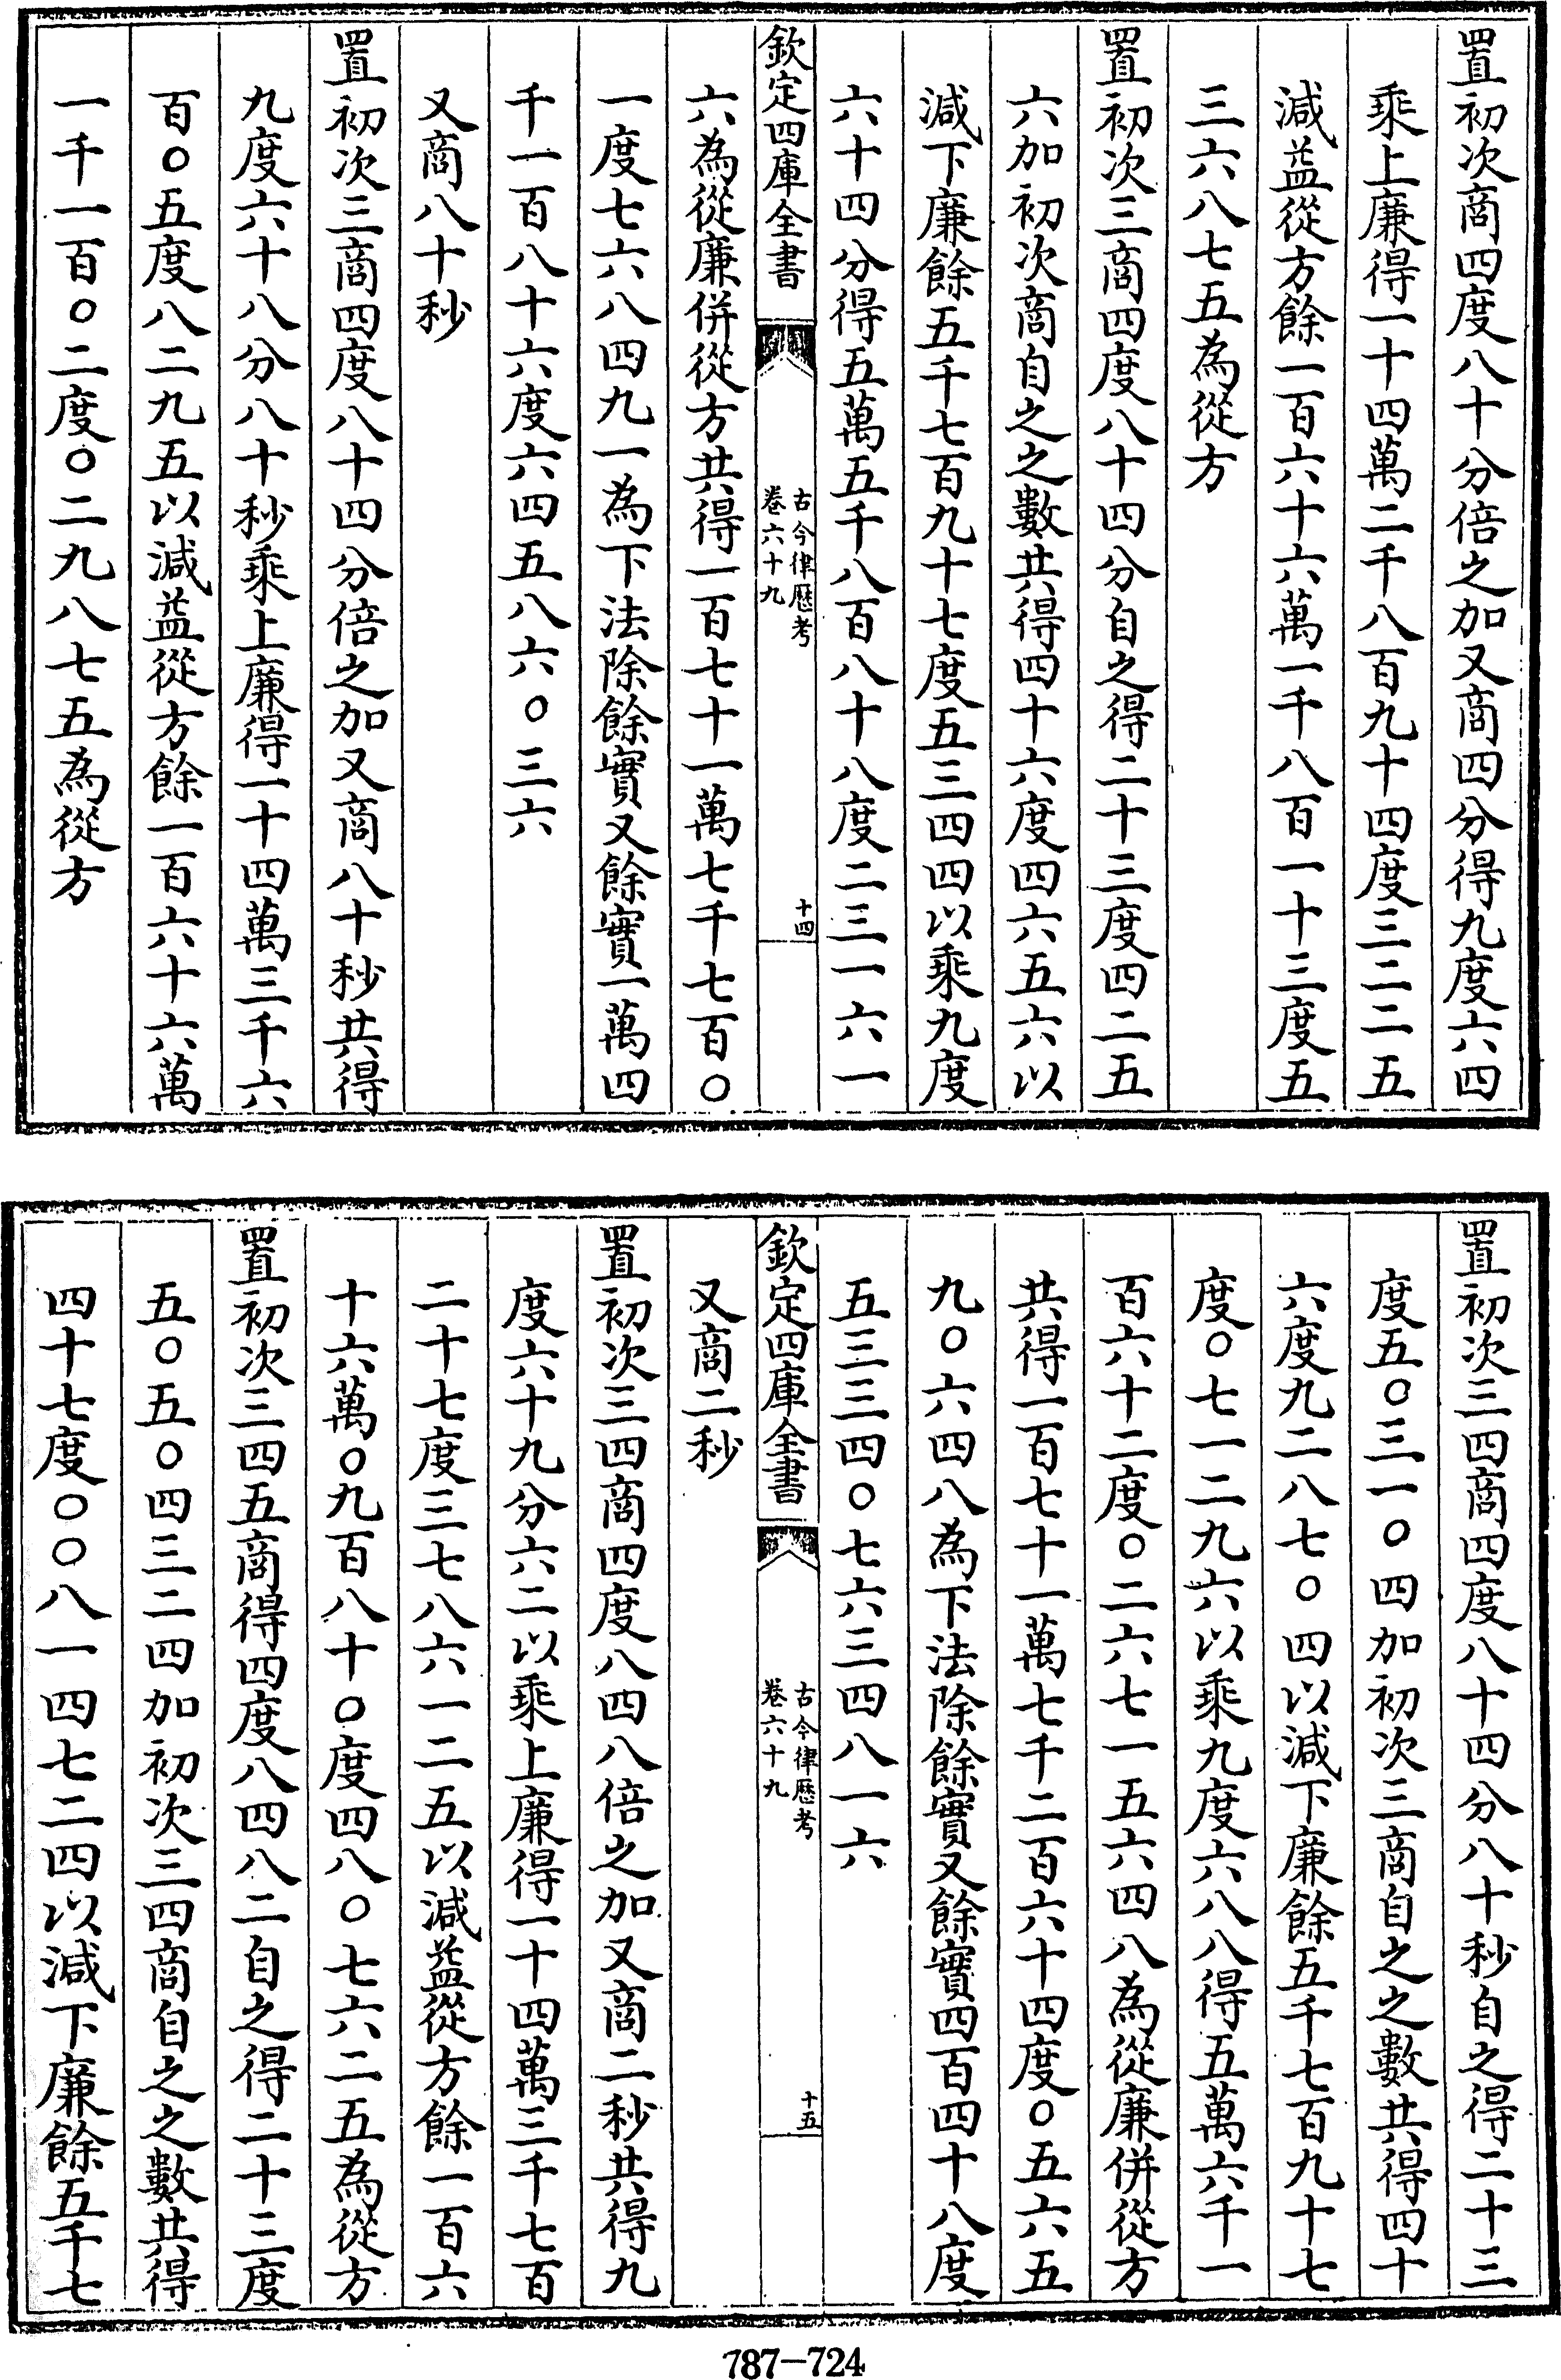 置初次商四度八十分倍之加又商四分得九度六四
乘上廉得一十四萬二千八百九十四度三二二五
減益從方餘一百六十六萬一千八百一十三度五
三六八七五為從方
置初次三商四度八十四分自之得二十三度四二五
六加初次商自之之數共得四十六度四六五六以
減下廉餘五千七百九十七度五三四四以乘九度
六十四分得五萬五千八百八十八度二三一六一
欽定四庫全書
古今律歷考
卷六十九
十四
六為從廉併從方共得一百七十一萬七千七百〇
一度七六八四九一為下法除餘實又餘實一萬四
千一百八十六度六四五八六〇三六
又商八十秒
置初次三商四度八十四分倍之加又商八十秒共得
九度六十八分八十秒乘上廉得一十四萬三千六
百〇五度八二九五以減益從方餘一百六十六萬
一千一百〇二度〇二九八七五為從方
置初次三四商四度八十四分八十秒自之得二十三
度五〇三一〇四加初次三商自之之數共得四十
六度九二八七〇四以減下廉餘五千七百九十七
度〇七一二九六以乘九度六八八得五萬六千一
百六十二度〇二六七一五六四八為從廉併從方
共得一百七十一萬七千二百六十四度〇五六五
九〇六四八為下法除餘實又餘實四百四十八度
五三三四〇七六三四八一六
欽定四庫全書
古今律歷考
卷六十九
十五
又商二秒
置初次三四商四度八四八倍之加又商二秒共得九
度六十九分六二以乘上廉得一十四萬三千七百
二十七度三七八六一二五以減益從方餘一百六
十六萬〇九百八十〇度四八〇七六二五為從方
置初次三四五商得四度八四八二自之得二十三度
五〇五〇四三二四加初次三四商自之之數共得
四十七度〇〇八一四七二四以減下廉餘五千七
787-724